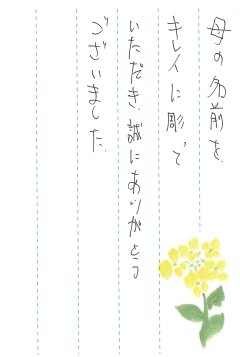 母の名前を
キレイに彫て
いただき、誠にありがとう
ございました。